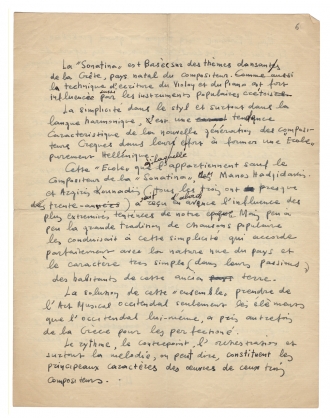 6
La "Sonatina" est basée sur des thèmes dansants
de la Crète, pays natal du compositeur. Comme aussi
la technique d'écriture du Violon et du Piano est fort
influencée par les instruments populaires crétois.
La simplicité dans le styl et surtout dans la
langue harmonique, c'est une tendence
caractéristique de la nouvelle génération des composi-
teurs Grecques dans leur effort à former une Ecole
purement Hellénique.
Cette "Ecole" à laquelle appartiennent sauf le
Compositeur de la "Sonatina", Manos Hadjidakis
et Argiris Kounadis, (tous les trois ont presque
trente) a reçu l'influence des
plus extremistes tendences de notre époque. Mais, peu à
peu la grande tradition de chansons populaires
les conduisait à cette simplicité qui accorde
parfaitement avec la nature nue du pays et
le caractère très simple (dans leurs passions)
des habitants de cette ancien terre.
La solution de cette ensembles, prendre de
l'Art Musical occidental seulement les eléments
que l'occidental lui-même, a pris autrefois
de la Grèce pour les perfectioné.
Le rythme, le contrepoint, l'orchestration et
surtout la mélodie, on peut dire, constituent les
principaux caractères des œuvres de ceux trois
compositeurs.